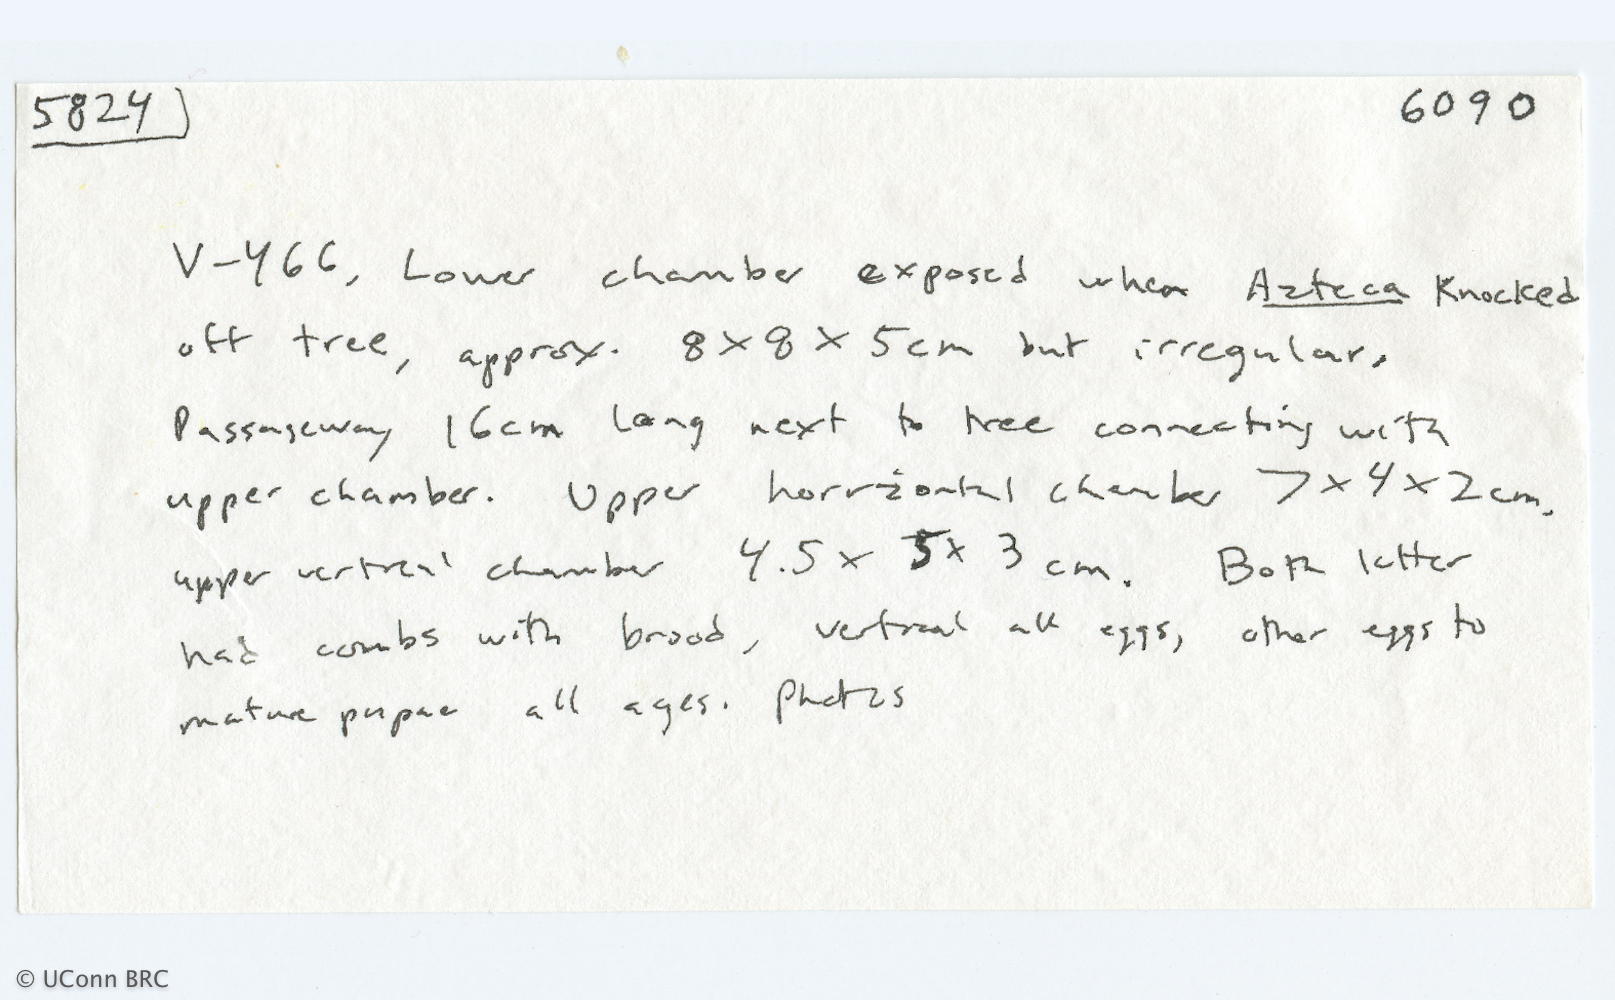 5824 6090
V-466, Lower chamber exposed when Azteca Knocked
off tree, approx. 8x8x5cm but irregular.
Passageway 16cm long next to tree connecting with
upper chamber. Upper horrizontal chamber 7x4x2cm.
upper vertical chamber 4.5x 5x 3 cm. Both latter
had combs with brood, vertical all eggs, other eggs to
mature pupae all ages. Photos
© UConn BRC